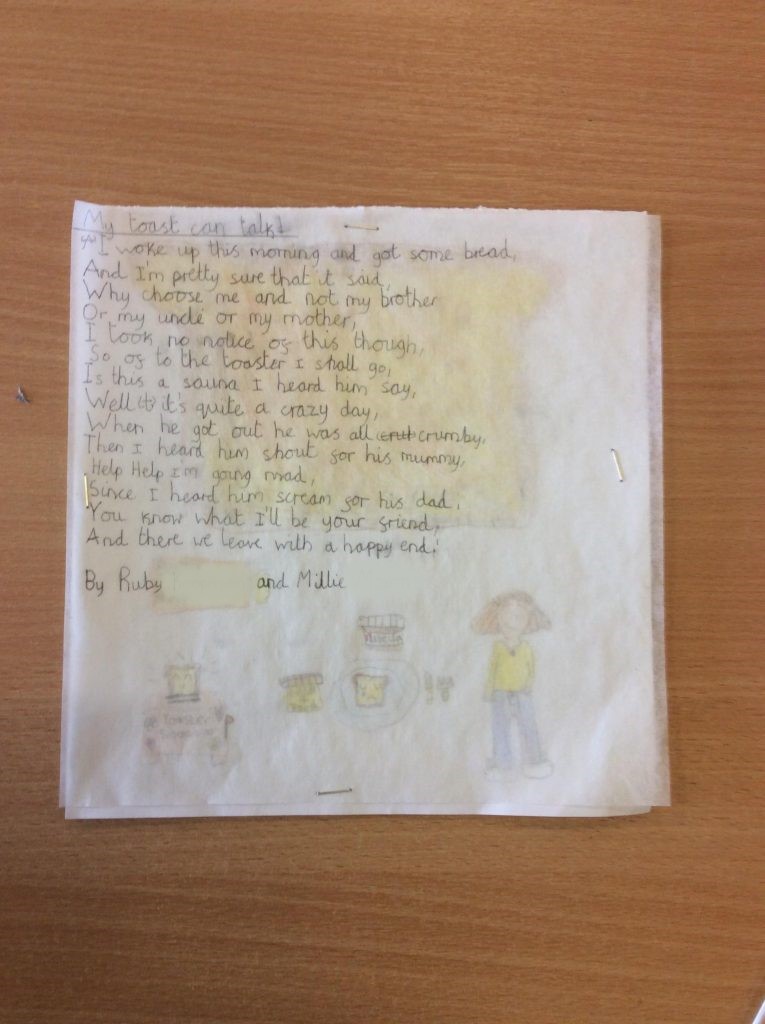 My toast can talk!
I woke up this morning and got some bread,
And I'm pretty sure that it said,
Why choose me and not my brother
Or my uncle or my mother,
I took no notice of this though,
So of to the toaster I shall go,
Is this a sauna I heard him say,
Well it's quite a crazy day,
When he got out he was all crumby,
Then I heard him shout for his mummy,
Help Help I'm going mad,
Since I heard him scream for his dad.
You know what I'll be your friend,
And there we leave with a happy end!
By Ruby and Millie
TOASTER